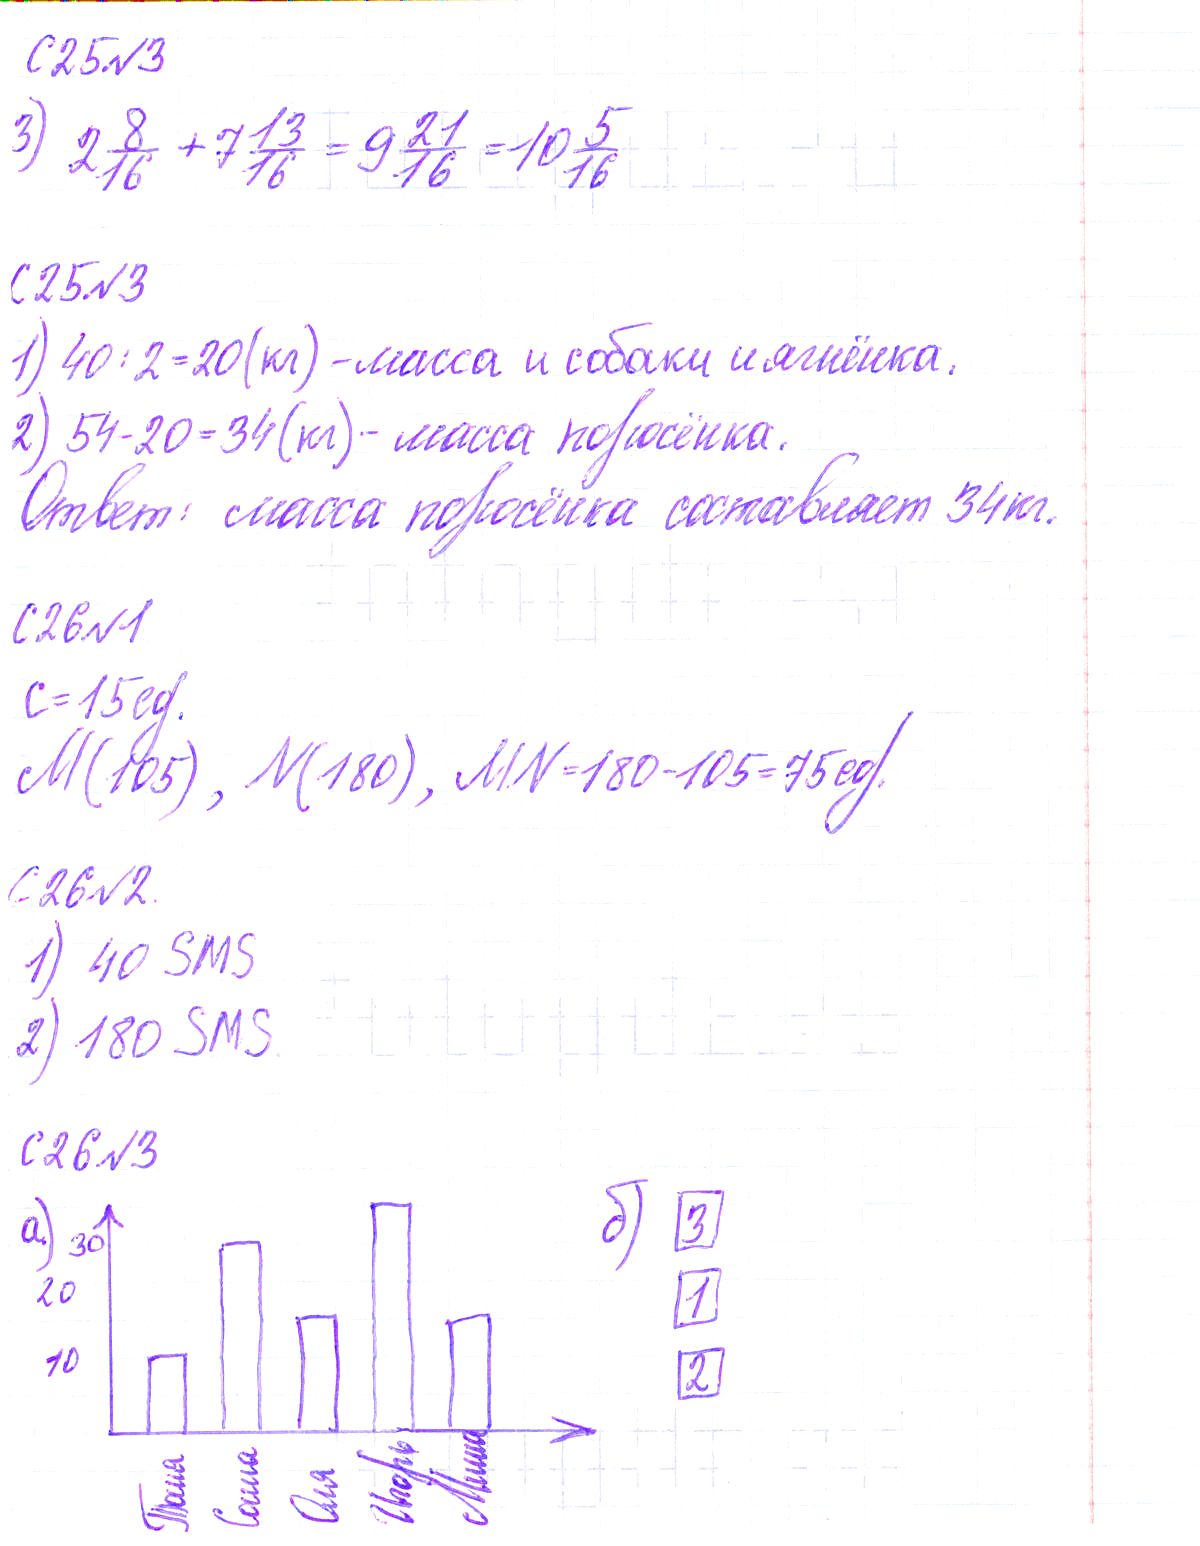 С25№3
3) 2 8/16 + 7 13/16 = 9 21/16 = 10 5/16
С25№3
1) 40:2=20(кг) - масса и собаки и ягнёнка.
2) 54-20=34(кг) - масса поросёнка.
Ответ: масса поросёнка составляет 34кг.
С26№1
С=15ед.
M(105), N(180), MN=180-105=75ед.
С26№2.
1) 40 SMS
2) 180 SMS
С26№3
а)
30
20
10
Таша
Саша
Оля
Игорь
Миша
б) 3
1
2